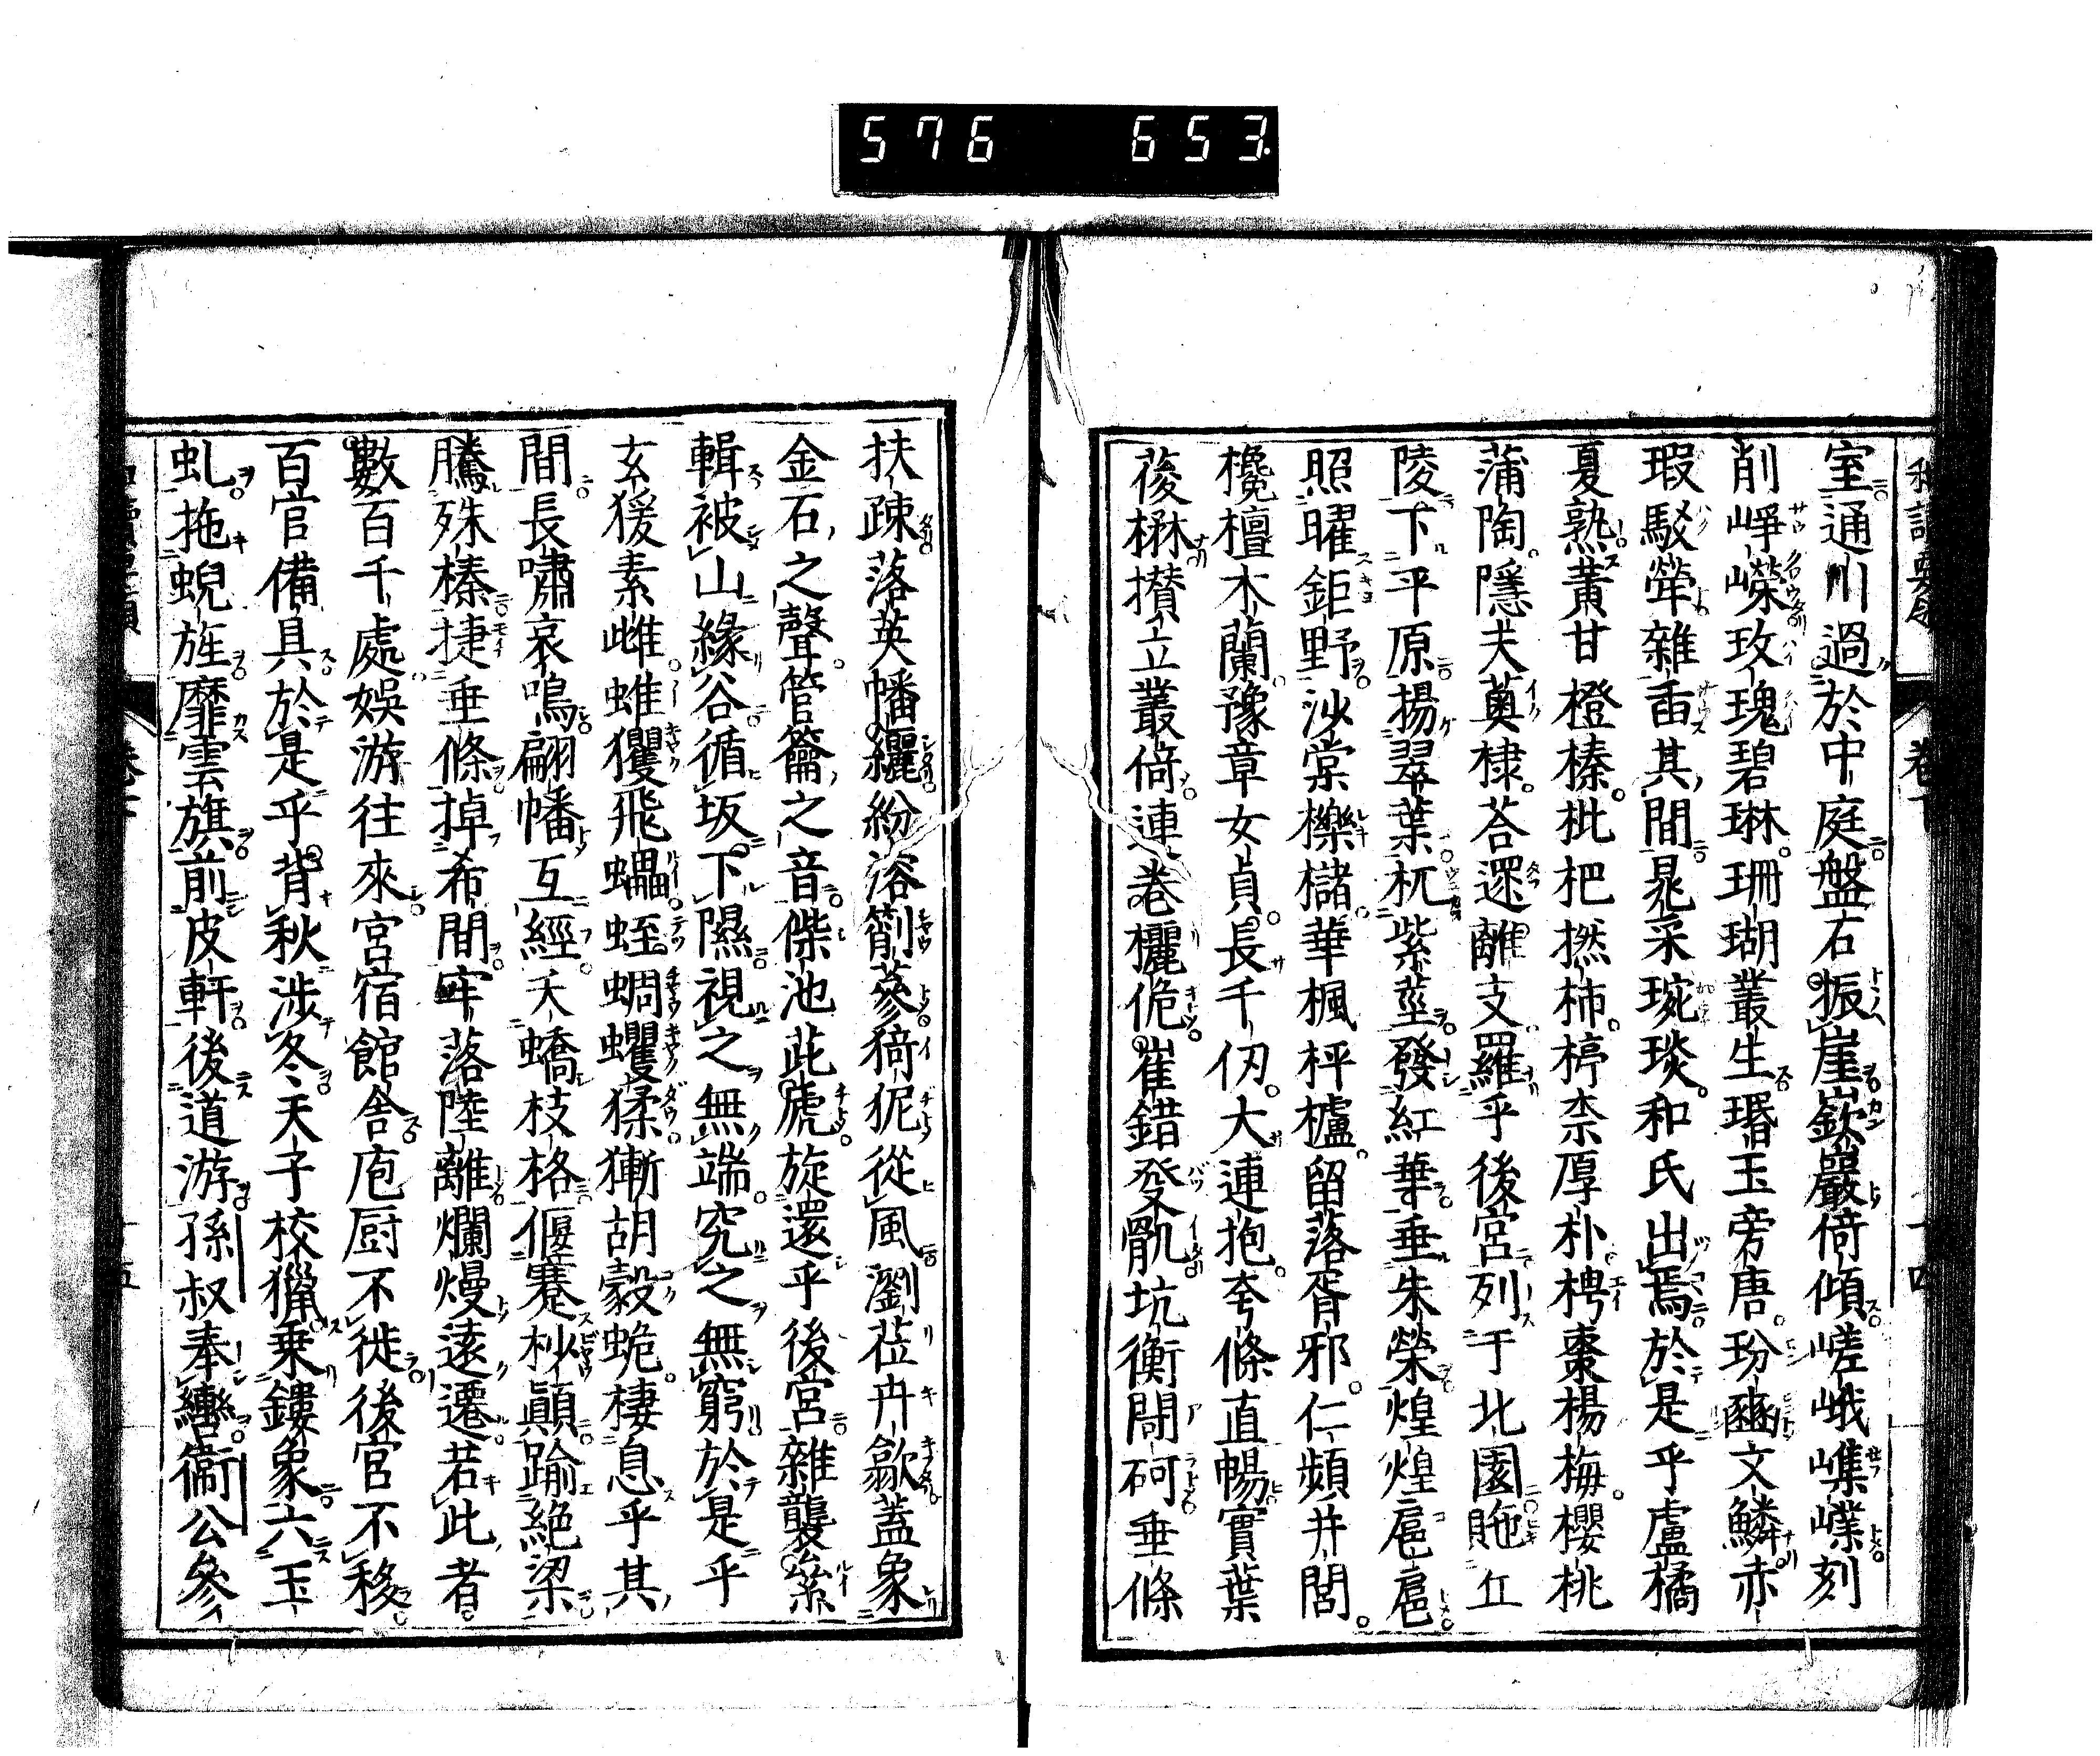 576 653
室通川過於中庭盤石振崖嶔巖倚傾嵯峨嶫刻
削崢嶸玫瑰碧琳珊瑚叢生瑉玉旁唐玢豳文鱗赤
瑕駁犖雜臿其間晁采琬琰和氏出焉於是乎盧橘
夏熟黃甘橙榛枇杷撚柿楟柰厚朴梬棗楊梅櫻桃
蒲陶隱夫薁棣荅遝離支羅乎後宮列于北園貤丘
陵下平原揚翠葉杌紫莖發紅華垂朱榮煌煌扈扈
照曜鉅野沙棠櫟櫧華楓枰櫨留落胥邪仁頻并閭
欃檀木蘭豫章女貞長千仞大連抱夸條直暢實葉
葰楙攢立叢倚連卷欐佹崔錯癹骫坑衡閜砢垂條
扶疎落英幡纚紛溶箾蔘猗狔從風瀏莅卉歙蓋象
金石之聲管籥之音傑池茈虒旋還乎後宮雜襲絫
輯被山緣谷循坂下隰視之無端究之無窮於是乎
玄猨素雌蜼玃飛蠝蛭蜩蠼猱獑胡豰蛫棲息乎其
間長嘯哀鳴翩幡互經夭蟜枝格偃蹇杪顛踰絕梁
騰殊榛捷垂條掉希間牢落陸離爛熳遠遷若此者
數百千處娛游往來宮宿館舍庖厨不徙後宮不移
百官備具於是乎背秋涉冬天子校獵乗鏤象六玉
虬拖蜺旌靡雲旗前皮軒後道游孫叔奉轡衞公參